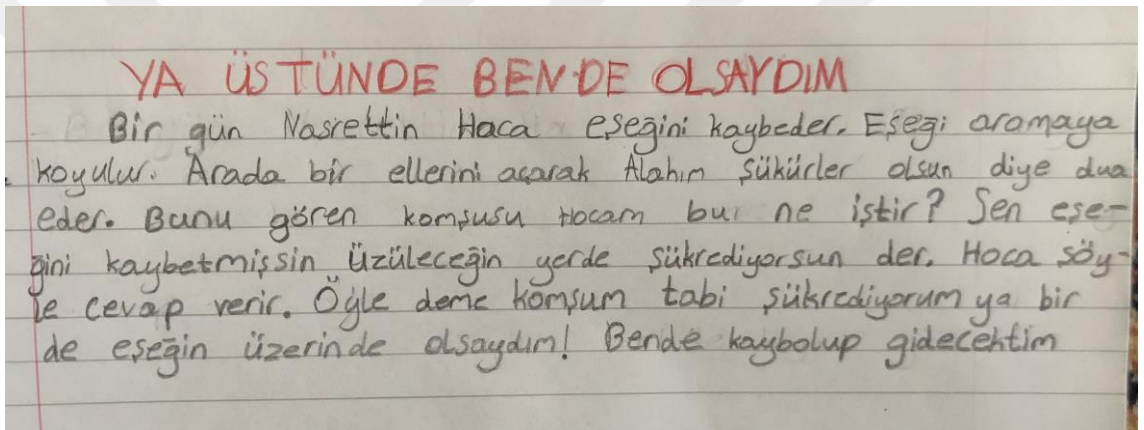 YA ÜSTÜNDE BENDE OLSAYDIM
Bir gün Nasrettin Haca eşeğini kaybeder. Eşeği aramaya
koyulur. Arada bir ellerini açarak Alahım şükürler olsun diye dua
eder. Bunu gören komşusu Hocam bu ne iştir? Sen eşe-
ğini kaybetmişsin üzüleceğin yerde şükrediyorsun der. Hoca şöy-
le cevap verir. Öyle deme komşum tabi şükrediyorum ya bir
de eşeğin üzerinde olsaydım! Bende kaybolup gidecektim